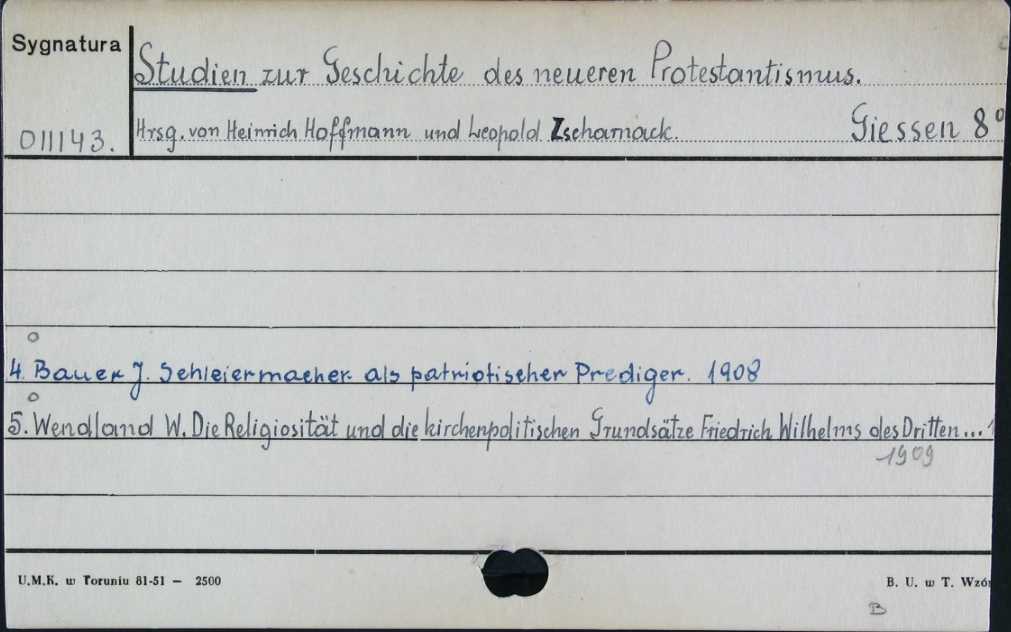 Sygnatura
Studien zur Geschichte des neueren Protestantismus.
011143.
Hrsg. von Heinrich Hoffmann und Leopold Zscharnack. Giessen 8º
4. Bauer J. Schleiermacher als patriotischer Prediger. 1908
5. Wendland W. Die Religiosität und die kirchenpolitischen Grundsätze Friedrich Wilhelms des Dritten...
1909
U.M.K. w Toruniu 81-51 — 2500
B. U. w T. Wzór
B